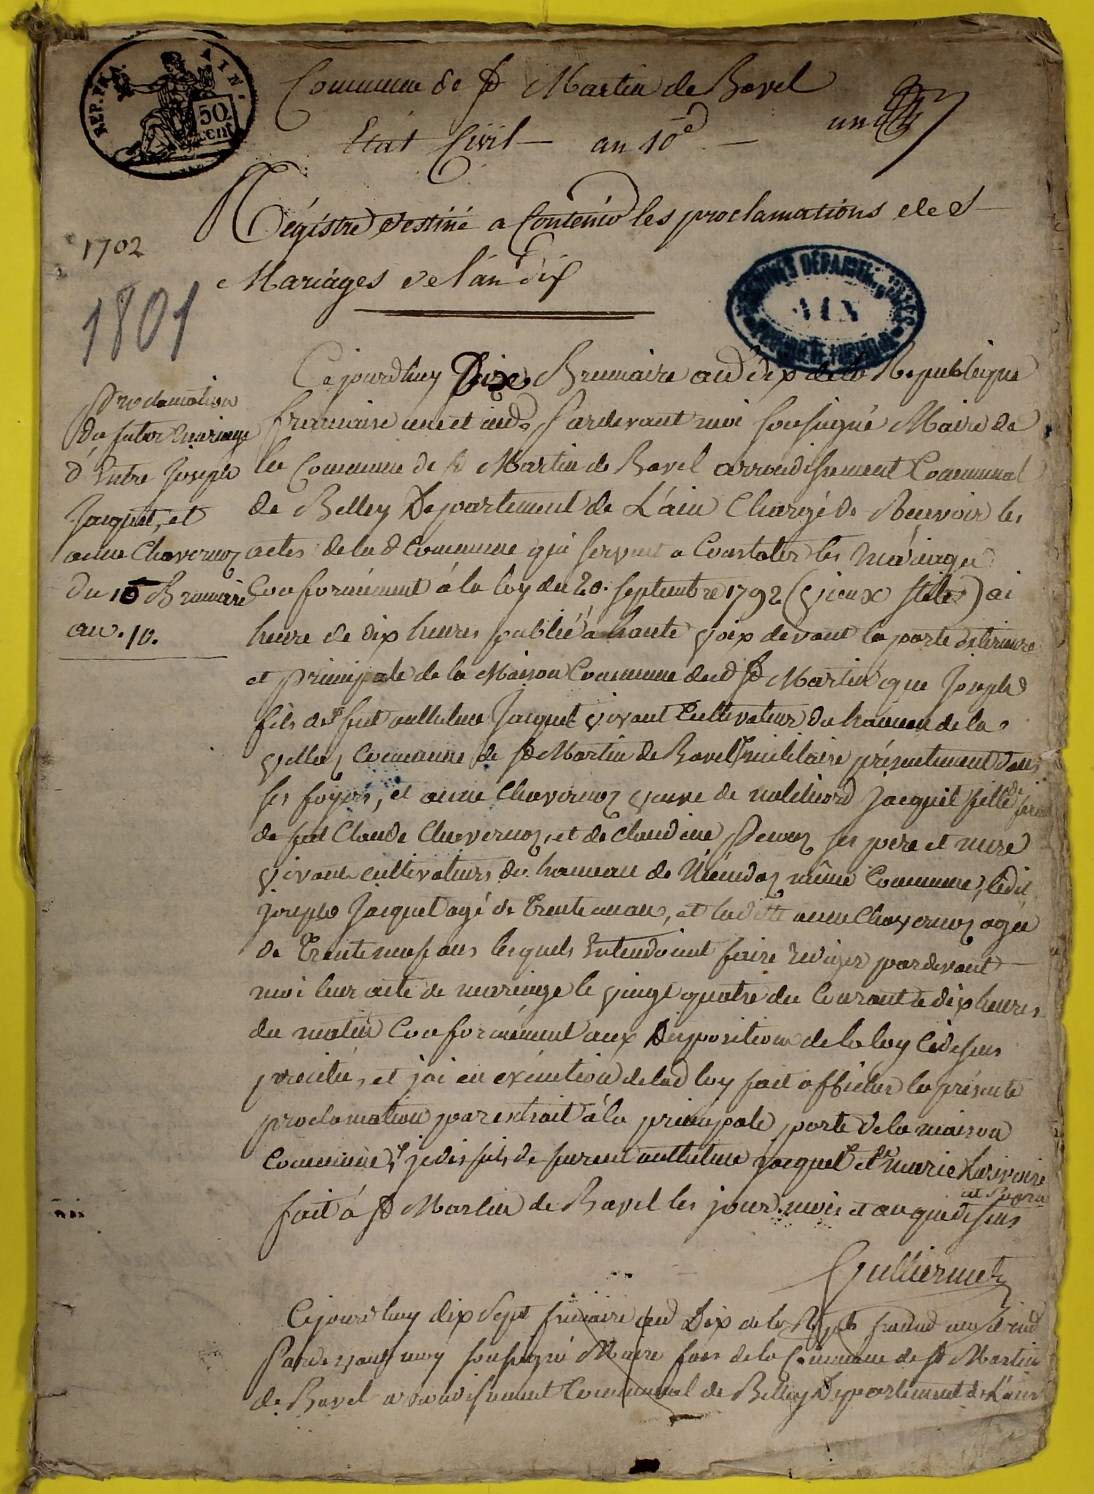 REP. FRA.
AIN.
50
cent
Commune de St Martin de Bavel
un
Etat Civil — an 10e —
Régistre destiné a Contenir les proclamations des
Mariages de l'an dix
1702
1801
ARCHIVES DÉPARTEMENTALES
AIN
Proclamation
du futur mariage
d'Entre Joseph
Jacquet, et
anne Chavernoz
du 10 Brumaire
an. 10.
Ce jourdhuy Dix Brumaire an dix de la Republique
francaise une et ind. Pardevant moi soussigné Maire de
la Commune de St Martin de Bavel arrondissement Communal
de Belley Departement de L'ain Chargé de Recevoir les
actes de lad Commune qui servent a Constater les mariages
Conformément à la loy du 20. septembre 1792 (vieux stile) ai
heure de dix heures publié à haute voix devant la porte extérieure
et principale de la Maison Commune dud St Martin que Joseph
fils de feu anthelme Jacquet vivant Cultivateur du hameau de la
commune de St Martin de Bavel militaire présentement dans
ses foyers, et anne Chavernoz veuve de Jacquet fille
de feu Claude Chavernoz, et de claudine ses pere et mere
vivant cultivateurs du hameau de même Commune, ledit
joseph Jacquet agé de Trente un an, et laditte anne Chavernoz agée
de Trente neuf ans lesquels Entendoient faire rediger pardevant
moi leur acte de mariage le vingt quatre du Courant a dix heures
du matin Conformément aux Disposition de la loy Cidessus
précitée, et jai en exécution de lad loy fait afficher la présente
proclamation par extrait à la principale porte de la maison
Commune, je dis fils de anthelme jacquet et marie
fait à St Martin de Bavel les jour mois et an que dessus
Gulliermet
Cejourdhuy dix sept frimaire an Dix de la
Pardevant moy soussigné Maire de la Commune de St Martin
de Bavel arrondissement Communal de Belley Departement de L'ain